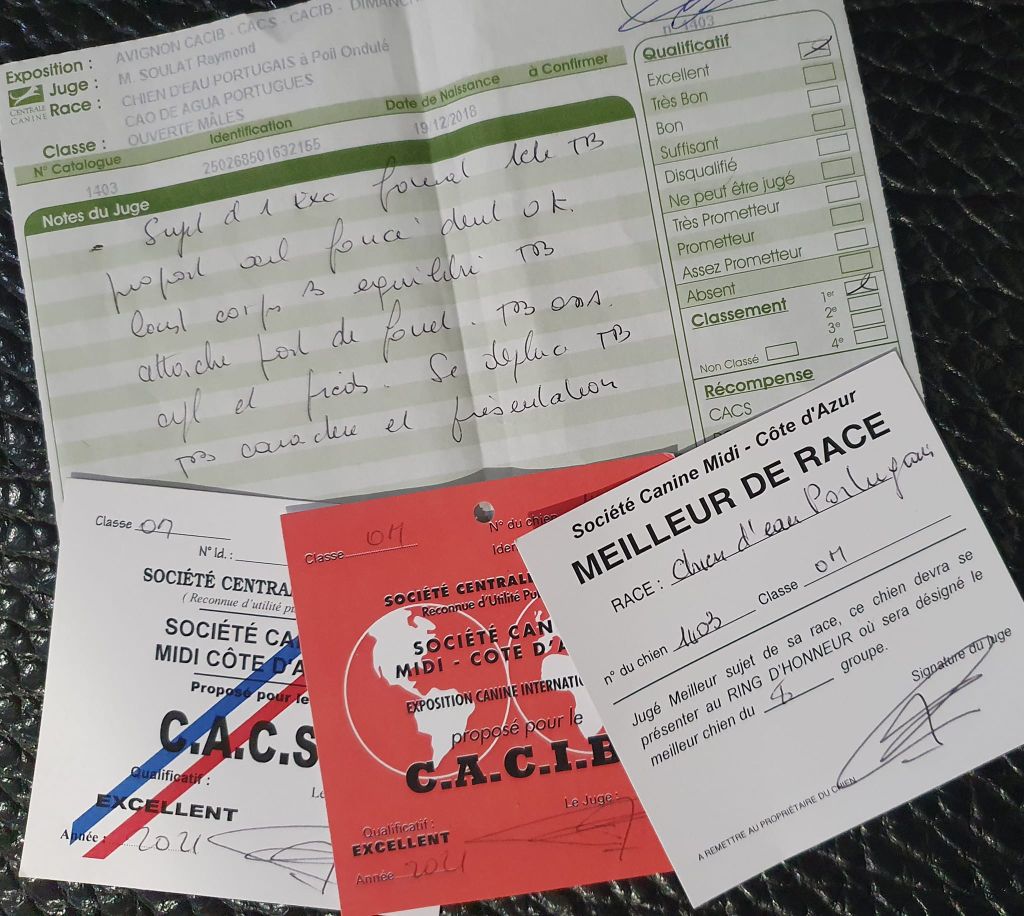 Exposition : AVIGNON CACIB - CACS - CACIB - DIMANCHE
Juge : M. SOULAT Raymond
Race : CHIEN D'EAU PORTUGAIS à Poil Ondulé
CAO DE AGUA PORTUGUES
Classe : OUVERTE MÂLES
CENTRALE CANINE
N° Catalogue Identification Date de Naissance à Confirmer
1403 250268501632155 19/12/2018
Notes du Juge
Sujet d 1 exc format tete TB
proport oeil foncé dent OK.
corps equilibré TB
attache port de fouet. TB
et pieds. Se deplace TB
TB caractere et présentation
n° 1403
Qualificatif
Excellent
Très Bon
Bon
Suffisant
Disqualifié
Ne peut être jugé
Très Prometteur
Prometteur
Assez Prometteur
Absent
Classement 1er
2e
3e
4e
Non Classé
Récompense
CACS
Classe OM
N° Id. :
SOCIÉTÉ CENTRAL
( Reconnue d'utilité pu
SOCIÉTÉ CA
MIDI CÔTE D'A
Proposé pour le
C.A.C.S
Qualificatif :
EXCELLENT
Année : 2021
N° du chien
Classe OM
Iden
SOCIÉTÉ CENTRAL
Reconnue d'Utilité Pu
SOCIÉTÉ CAN
MIDI - COTE D'A
EXPOSITION CANINE INTERNATI
proposé pour le
C.A.C.I.B
Le Juge :
Qualificatif :
EXCELLENT
Année 2021
Société Canine Midi - Côte d'Azur
MEILLEUR DE RACE
RACE : Chien d'eau Portugais
n° du chien 1403 Classe OM
Jugé Meilleur sujet de sa race, ce chien devra se
présenter au RING D'HONNEUR où sera désigné le
meilleur chien du 8 groupe.
Signature du Juge
A REMETTRE AU PROPRIÉTAIRE DU CHIEN